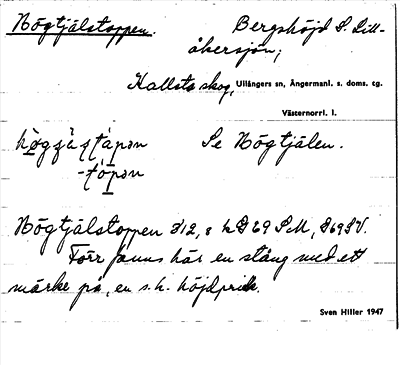 Högtjälstoppen.
Bergshöjd S. Lill-
åkersjön;
Hallsta skog, Ullångers sn, Ångermanl. s. doms. tg.
Västernorrl. l.
Se Högtjälen.
Högtjälstoppen 312,8 h D69 SM, D69SV.
Förr fanns här en stång med ett
märke på, en s.k. höjdprick.
Sven Hiller 1947